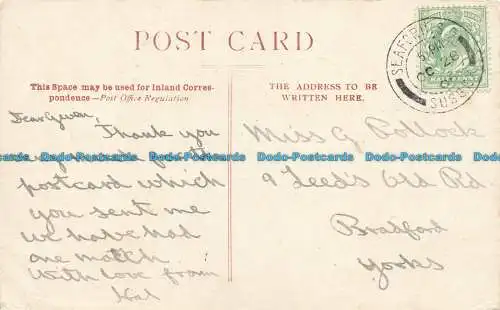 POST CARD
This Space may be used for Inland Corres-
pondence—Post Office Regulation
THE ADDRESS TO BE
WRITTEN HERE.
Dear Gwen,
Thank you
very much for the
postcard which
you sent me
we have had
one match
With love from
Hal
Miss G Pollock
9 Leed's Old Rd
Bradford
Yorks
SEAFORD
OC 26
SUSS
Dodo-Postcards Dodo-Postcards Dodo-Postcards Dodo-Postcards
Dodo-Postcards Dodo-Postcards Dodo-Postcards Dodo-Postcards